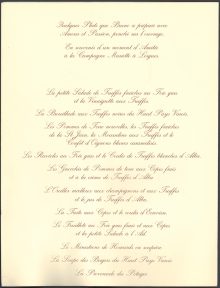 Quelques Plats que Bruno a préparé avec
Amour et Passion, penchés sur l'ouvrage.
En souvenir d'un moment d'Amitié
à la Campagne Mariette à Lorgues
La petite Salade de Truffes fraîches au Foie gras
et la Vinaigrette aux Truffes.
La Brouillade aux Truffes noires du Haut Pays Varois.
Les Pommes de Terre nouvelles, les Truffes fraîches
de la St Jean, la Mousseline aux Truffes et le
Confit d'Oignons blancs caramélisés.
Les Ravioles au Foie gras et le Coulis de Truffes blanches d'Alba.
Les Gnocchis de Pommes de terre aux Cèpes frais
et à la crème de Truffes d'Alba.
aux champignons et aux Truffes
et le jus de Truffes d'Alba.
La Tarte aux Cèpes et le coulis
Le Feuilleté au Foie gras frais et aux Cèpes
et la petite Salade à l'Ail.
Le de Homards en surprise.
La Soupe des Bergers du Haut Pays Varois.
La Promenade des Potagers.